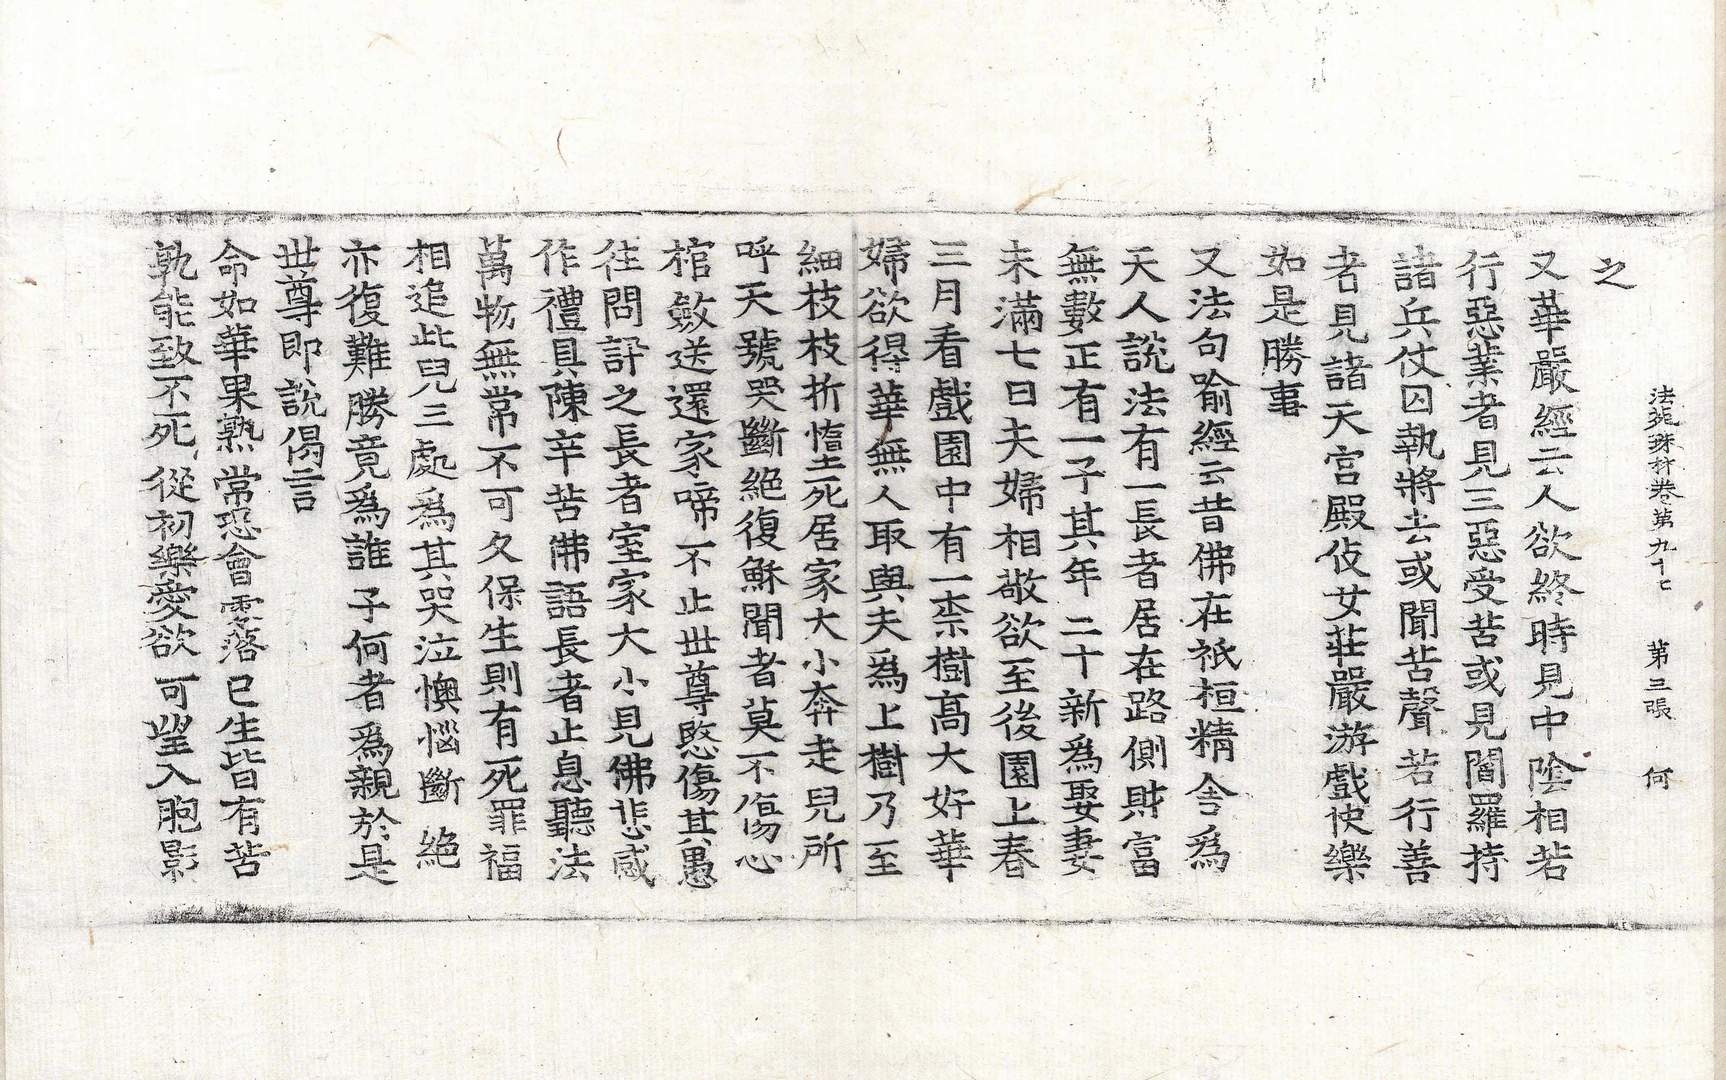 法苑珠林卷第九十七 第三張 何
之
又華嚴經云人欲終時見中陰相若
行惡業者見三惡受苦或見閻羅持
諸兵仗囚執將去或聞苦聲若行善
者見諸天宮殿伎女莊嚴游戲快樂
如是勝事
又法句喻經云昔佛在祇桓精舍為
天人說法有一長者居在路側財富
無數正有一子其年二十新為娶妻
未滿七日夫婦相敬欲至後園上春
三月看戲園中有一柰樹高大好華
婦欲得華無人取與夫為上樹乃至
細枝枝折墮死居家大小奔走兒所
呼天號哭斷絕復穌聞者莫不傷心
棺斂送還家啼不止世尊愍傷其愚
往問訊之長者室家大小見佛悲感
作禮具陳辛苦佛語長者止息聽法
萬物無常不可久保生則有死罪福
相追此兒三處為其哭泣懊惱斷絕
亦復難勝竟為誰子何者為親於是
世尊即說偈言
命如華果熟 常恐會零落 已生皆有苦
孰能致不死 從初樂愛欲 可望入胞影